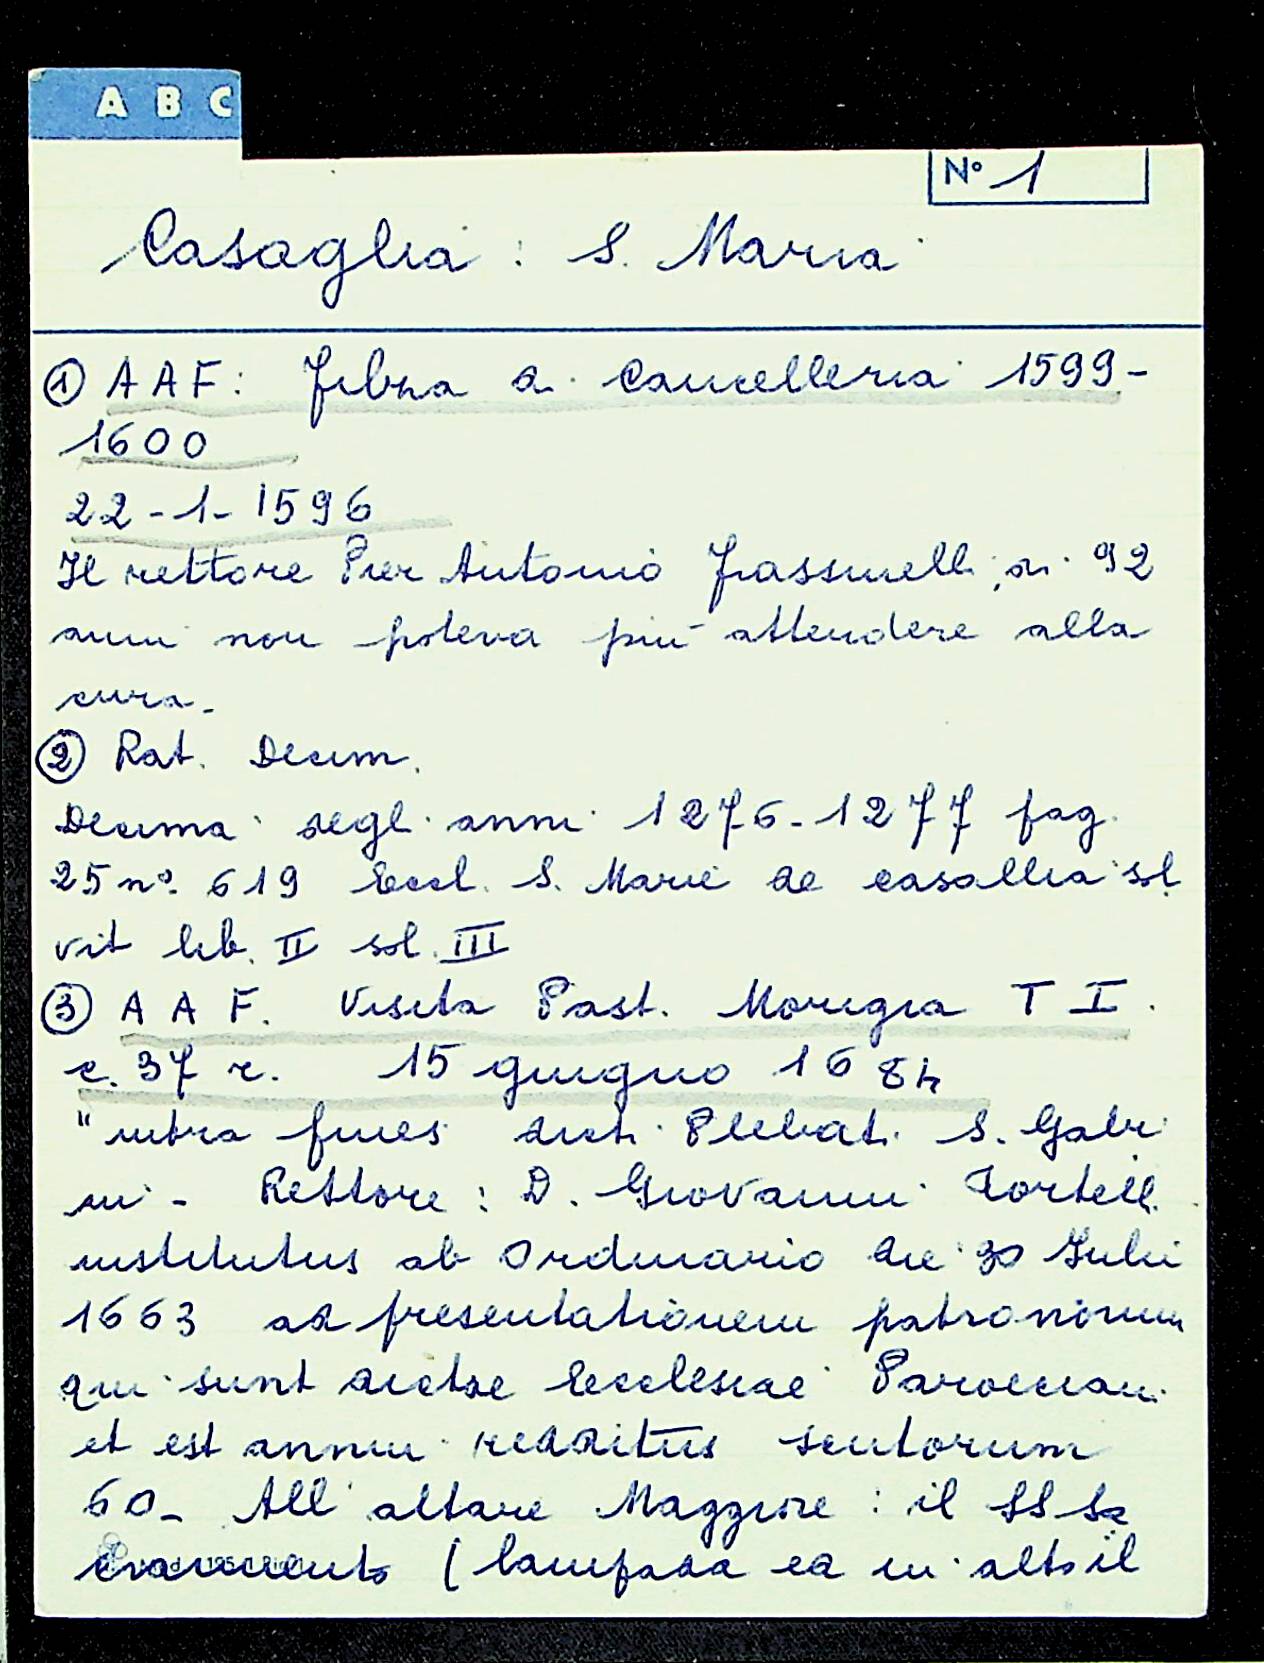 A B C
Nº 1
Casaglia : S. Maria
① AAF: Filza di Cancelleria 1599-
1600
22-1-1596
Il rettore Pier Antonio Frassinelli, di 92
anni non poteva più attendere alla
cura.
② Rat. Decim.
Decima degli anni 1276-1277 pag.
25 nº 619 Eccl. S. Marie de Casallia sol
vit lib. II sol. III
③ A A F. Visita Past. Morigia T I.
c. 37 r. 15 giugno 1684
"intra fines dict. Plebat. S. Gavi
ni - Rettore: D. Giovanni Tortelli
institutus ab Ordinario die 30 Julii
1663 ad presentationem patronorum
qui sunt dictae Ecclesiae Parocciani
et est annui redditus scutorum
60_ All'altare Maggiore : il SS Sa
cramento (lampada ed in alto il